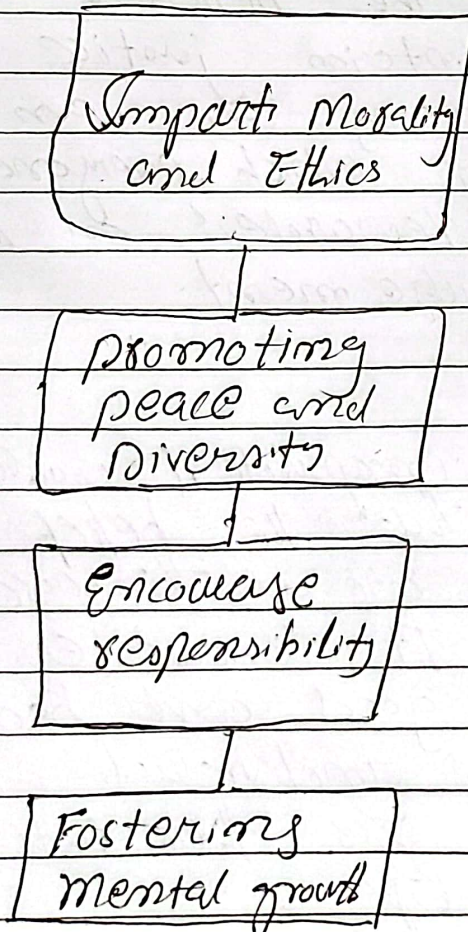 Impart Morality
and Ethics
promoting
peace and
Diversity
Encourage
responsibility
Fostering
mental growth